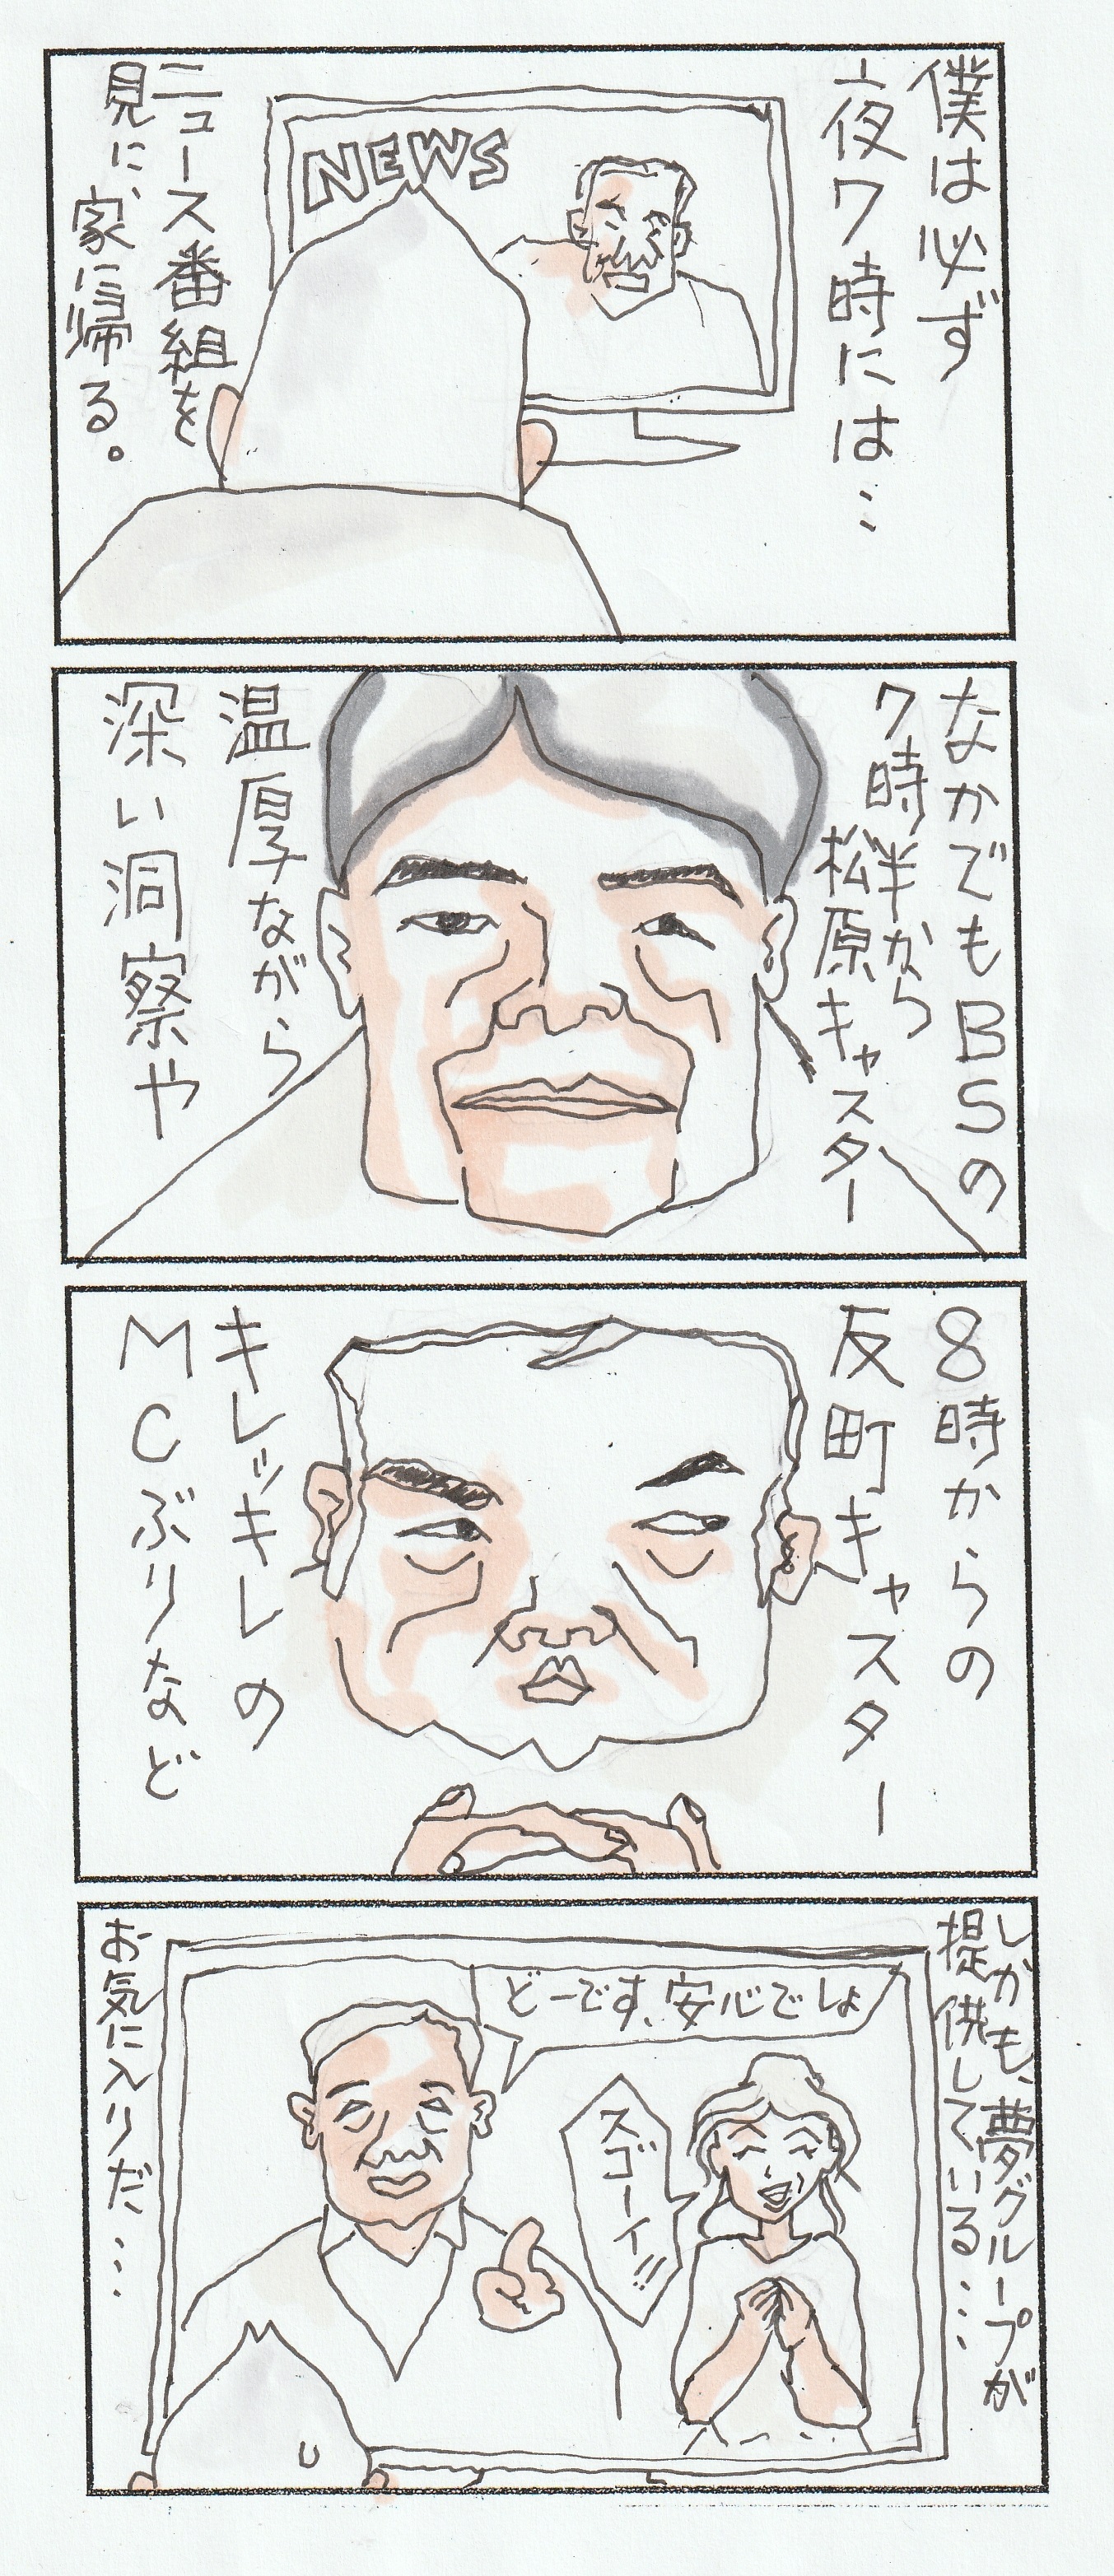 僕は必ず
夜7時には…
NEWS
ニュース番組を
見に、家に帰る。
なかでもBSの
7時半から
松原キャスター
温厚ながら
深い洞察や
8時からの
反町キャスター
キレッキレの
MCぶりなど
しかも、夢グループが
提供している……
どーです、安心でしょ
スゴーイ!!
お気に入りだ…